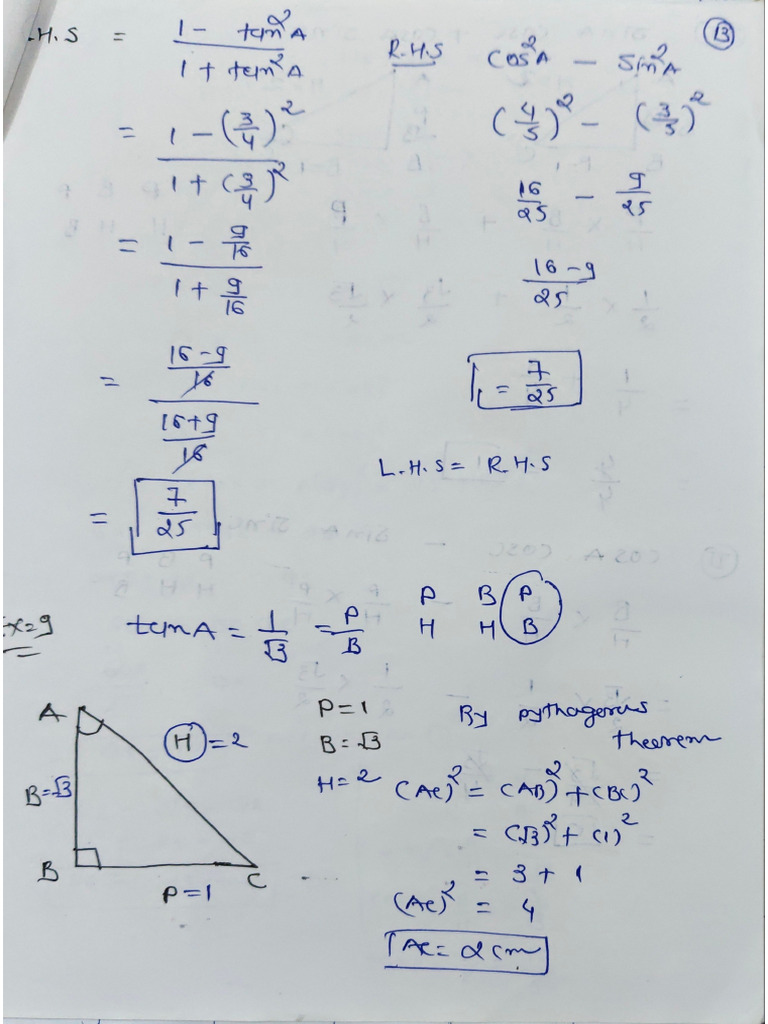 ⑬
L.H.S = (1 - tan²A)/(1 + tan²A)
= (1 - (3/4)²)/(1 + (3/4)²)
= (1 - 9/16)/(1 + 9/16)
= ((16-9)/16)/((16+9)/16)
= 7/25
R.H.S cos²A - sin²A
(4/5)² - (3/5)²
16/25 - 9/25
(16-9)/25
= 7/25
L.H.S = R.H.S
Ex=9 tan A = 1/√3 = P/B
P B P
H H B
A
H = 2
B=√3
B
P=1
C
P=1
B=√3
H=2
By pythagorus
theorem
(AC)² = (AB)² + (BC)²
= (√3)² + (1)²
= 3 + 1
(AC)² = 4
AC = 2cm